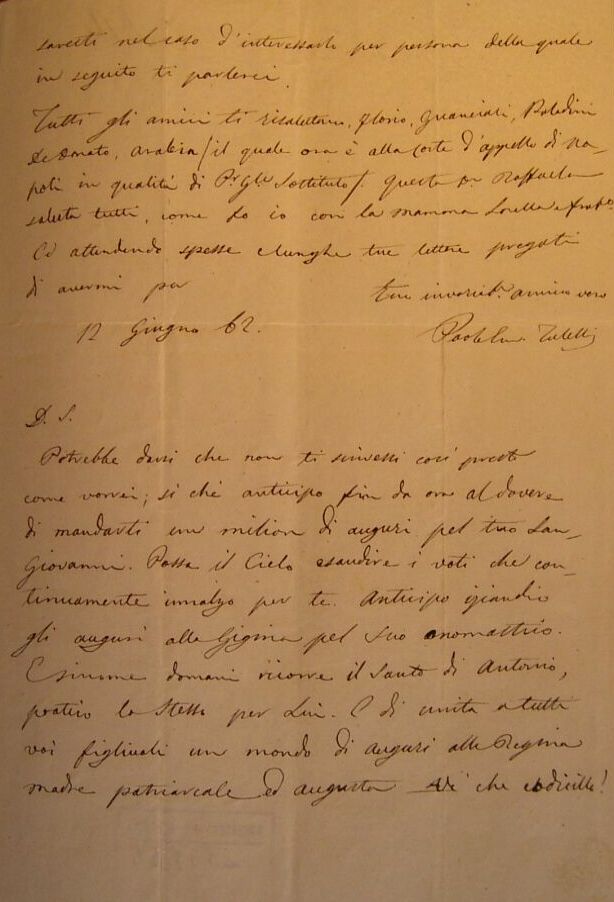 saresti nel caso d'interessarti per persona della quale
in seguito ti parlerei.
Tutti gli amici ti risalutano, Florio, Guanciali, Paladini
De Donato, Arabia / il quale ora è alla Corte d'appello di Na-
poli in qualità di Pr. Gle. Sostituto /. Questa Da. Raffaela
saluta tutti, come fo io con la mamma Lorella e
Ed attendendo spesse e lunghe tue lettere pregoti
di avermi per
tuo invariabe. amico vero
12 Giugno 62.
P. S.
Potrebbe darsi che non ti scrivessi così presto
come vorrei; sì che anticipo fin da ora al dovere
di mandarti un milion di auguri pel tuo San
Giovanni. Possa il Cielo esaudire i voti che con-
tinuamente innalzo per te. Anticipo eziandio
gli auguri alla Gigina pel suo onomastico.
E siccome domani ricorre il Santo di Antonio,
pratico lo stesso per Lui. E di unita a tutti
voi figliuoli un mondo di auguri alla Regina
madre patriarcale ed augusta. che codicillo!